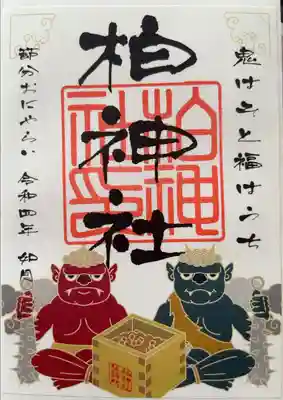 鬼はそと福はうち
柏神社
柏神社印
節分おにやらい 令和四年 如月